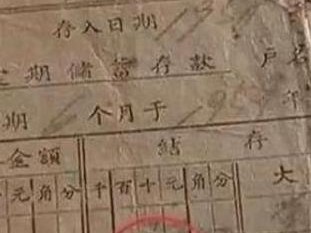 存入日期
定期儲蓄存款 户名
期 个月于 195 年
金額 結存
元角分 千百十元角分 大